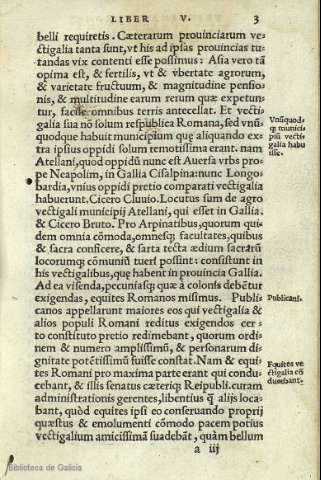 LIBER V. 3
belli requiretis. Cæterarum prouinciarum ve-
ctigalia tanta sunt, vt his ad ipsas prouincias tu-
tandas vix contenti esse possimus: Asia vero tã
opima est, & fertilis, vt & vbertate agrorum,
& varietate fructuum, & magnitudine pensio-
nis, & multitudine earum rerum quæ expetun-
tur, facile omnibus terris antecellat. Et vecti-
galia sua nõ solum respublica Romana, sed vnũ-
quodque habuit municipium quę aliquando ex-
tra ipsius oppidi solum remotissima erant. nam
Atellani, quod oppidũ nunc est Auersa vrbs pro-
pe Neapolim, in Gallia Cisalpina: nunc Longo-
bardia, vnius oppidi pretio comparati vectigalia
habuerunt. Cicero Cluuio. Locutus sum de agro
vectigali municipij Atellani, qui esset in Gallia.
& Cicero Bruto. Pro Arpinatibus, quorum qui-
dem omnia cõmoda, omnesq; facultates, quibus
& sacra conficere, & sarta tecta ædium sacrarũ
locorumq; cõmuniũ tueri possint: consistunt in
his vectigalibus, quę habent in prouincia Gallia.
Ad ea visenda, pecuniasq; quæ à colonis debẽtur
exigendas, equites Romanos misimus. Publi-
canos appellarunt maiores eos qui vectigalia &
alios populi Romani reditus exigendos cer-
to constituto pretio redimebant, quorum ordi-
nem & numero amplissimũ, & personarum di-
gnitate potẽtissimũ fuisse constat. Nam & equi-
tes Romani pro maxima parte erant qui condu-
cebant, & illis senatus cæteriq; Reipubli. curam
administrationis gerentes, libentius q̃ alijs loca-
bant, quòd equites ipsi eo conseruando proprij
quæstus & emolumenti cõmodo pacem potius
vectigalium amicissimã suadebãt, quàm bellum
a iij
Vnũquod-
q; munici-
piũ vecti-
galia habu
isse.
Publicani.
Equites ve
ctigalia cõ
ducebant.
Biblioteca de Galicia